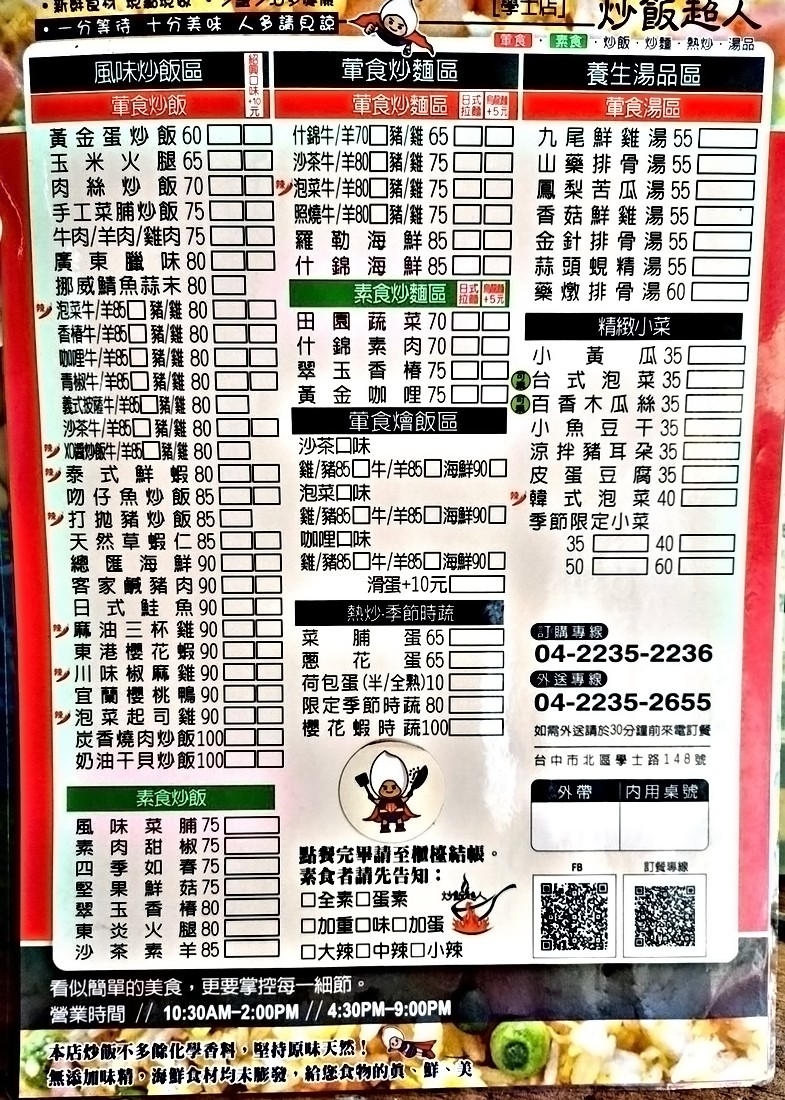 •一分等待 十分美味 人多請見諒
[學士店]
炒飯超人
葷食・素食・炒飯・炒麵・熱炒・湯品
風味炒飯區
紹興口味+10元
葷食炒飯
黃金蛋炒飯 60
玉米火腿 65
肉絲炒飯 70
手工菜脯炒飯 75
牛肉/羊肉/雞肉 75
廣東臘味 80
挪威鯖魚蒜末 80
辣 泡菜牛/羊85 豬/雞 80
香椿牛/羊85 豬/雞 80
咖哩牛/羊85 豬/雞 80
青椒牛/羊85 豬/雞 80
義式披薩牛/羊85 豬/雞 80
沙茶牛/羊85 豬/雞 80
辣 XO醬炒飯牛/羊85 豬/雞 80
辣 泰式鮮蝦 80
吻仔魚炒飯 85
辣 打拋豬炒飯 85
天然草蝦仁 85
總匯海鮮 90
客家鹹豬肉 90
日式鮭魚 90
辣 麻油三杯雞 90
東港櫻花蝦 90
辣 川味椒麻雞 90
宜蘭櫻桃鴨 90
辣 泡菜起司雞 90
炭香燒肉炒飯 100
奶油干貝炒飯 100
素食炒飯
風味菜脯 75
素肉甜椒 75
四季如春 75
堅果鮮菇 75
翠玉香椿 80
東炎火腿 80
沙茶素羊 85
葷食炒麵區
葷食炒麵區 日式拉麵 烏龍麵+5元
什錦牛/羊70 豬/雞 65
沙茶牛/羊80 豬/雞 75
辣 泡菜牛/羊80 豬/雞 75
照燒牛/羊80 豬/雞 75
羅勒海鮮 85
什錦海鮮 85
素食炒麵區 日式拉麵 烏龍麵+5元
田園蔬菜 70
什錦素肉 70
翠玉香椿 75
黃金咖哩 75
葷食燴飯區
沙茶口味
雞/豬85 牛/羊85 海鮮90
泡菜口味
雞/豬85 牛/羊85 海鮮90
咖哩口味
雞/豬85 牛/羊85 海鮮90
滑蛋+10元
熱炒・季節時蔬
菜脯蛋 65
蔥花蛋 65
荷包蛋(半/全熟)10
限定季節時蔬 80
櫻花蝦時蔬 100
點餐完畢請至櫃檯結帳。
素食者請先告知:
□全素□蛋素
□加重□味□加蛋
□大辣□中辣□小辣
養生湯品區
葷食湯區
九尾鮮雞湯 55
山藥排骨湯 55
鳳梨苦瓜湯 55
香菇鮮雞湯 55
金針排骨湯 55
蒜頭蜆精湯 55
藥燉排骨湯 60
精緻小菜
小黃瓜 35
台式泡菜 35
百香木瓜絲 35
小魚豆干 35
涼拌豬耳朵 35
皮蛋豆腐 35
辣 韓式泡菜 40
季節限定小菜
35 40
50 60
訂購專線
04-2235-2236
外送專線
04-2235-2655
如需外送請於30分鐘前來電訂餐
台中市北區學士路148號
外帶 內用桌號
FB 訂餐專線
看似簡單的美食,更要掌控每一細節。
營業時間 // 10:30AM–2:00PM // 4:30PM–9:00PM
本店炒飯不多餘化學香料,堅持原味天然!
無添加味精,海鮮食材均未膨發,給您食物的真、鮮、美